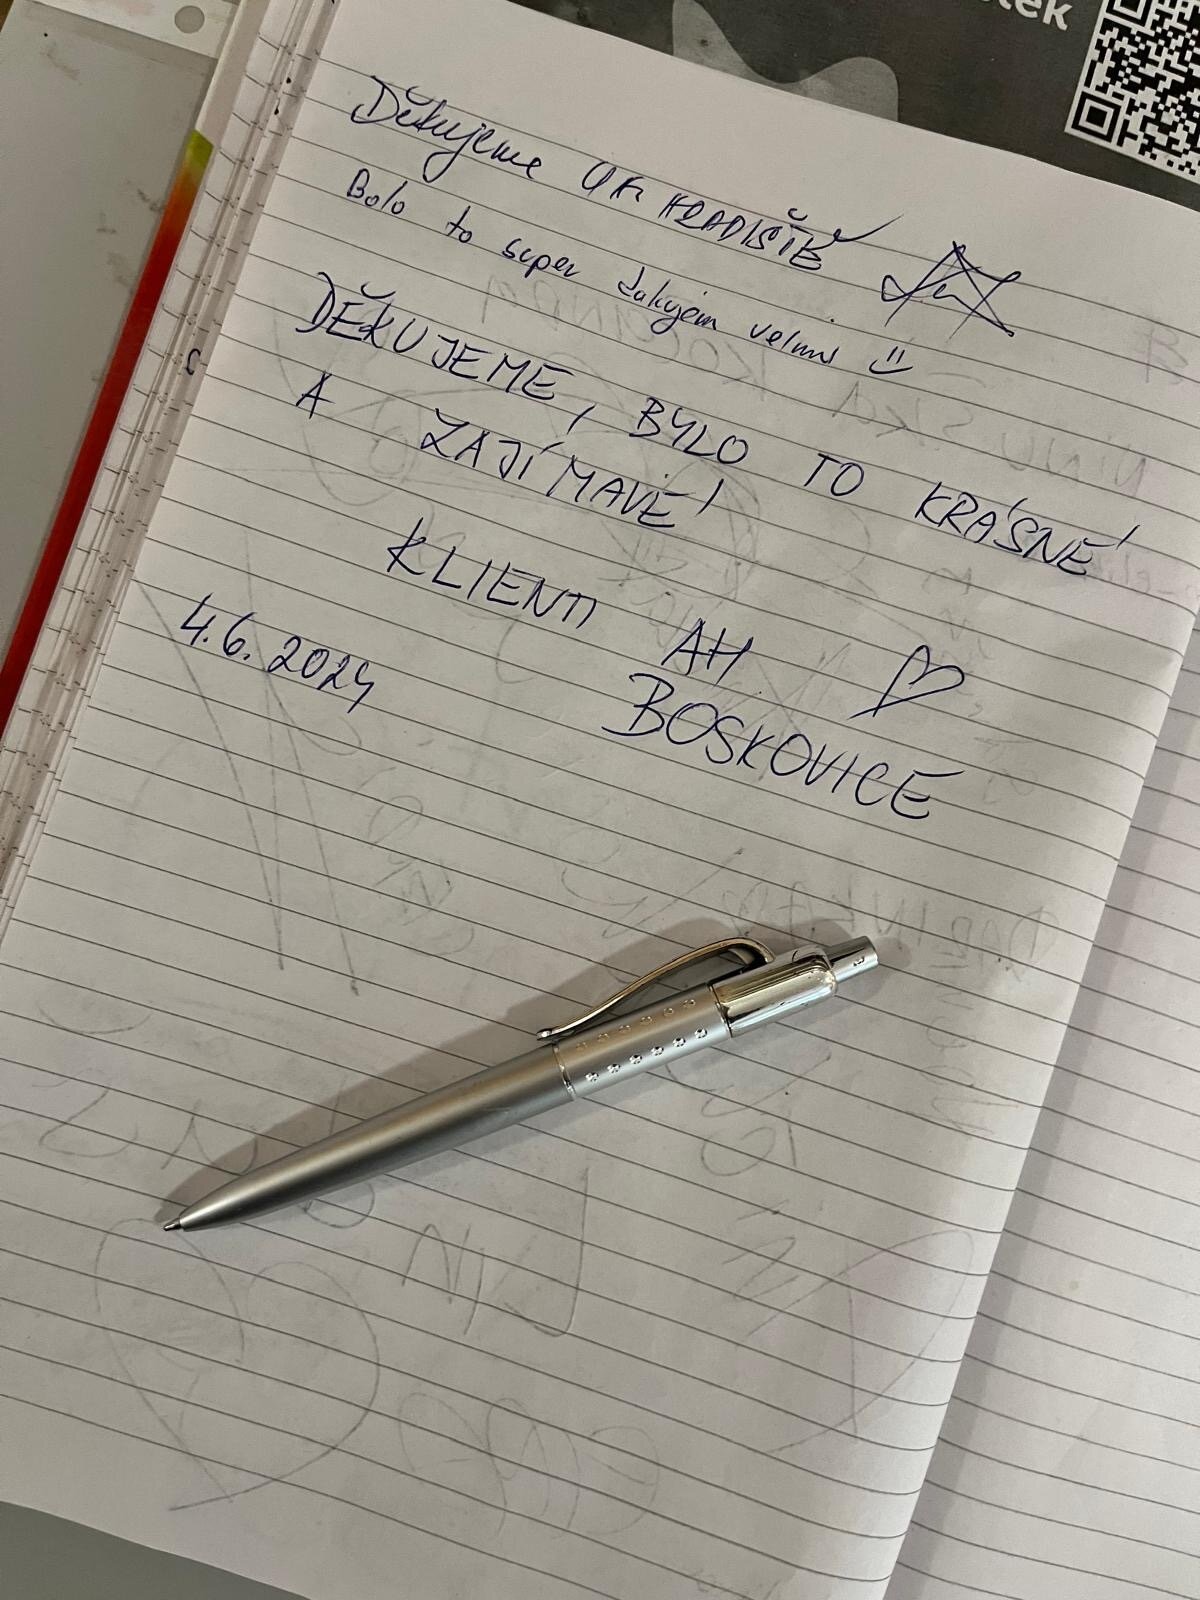 tek
Děkujeme UH. HRADIŠTĚ
Bolo to super ďakujem velmi
DĚKUJEME, BYLO TO KRÁSNÉ
A ZAJÍMAVÉ!
KLIENTI AH
BOSKOVICE
4.6.2024